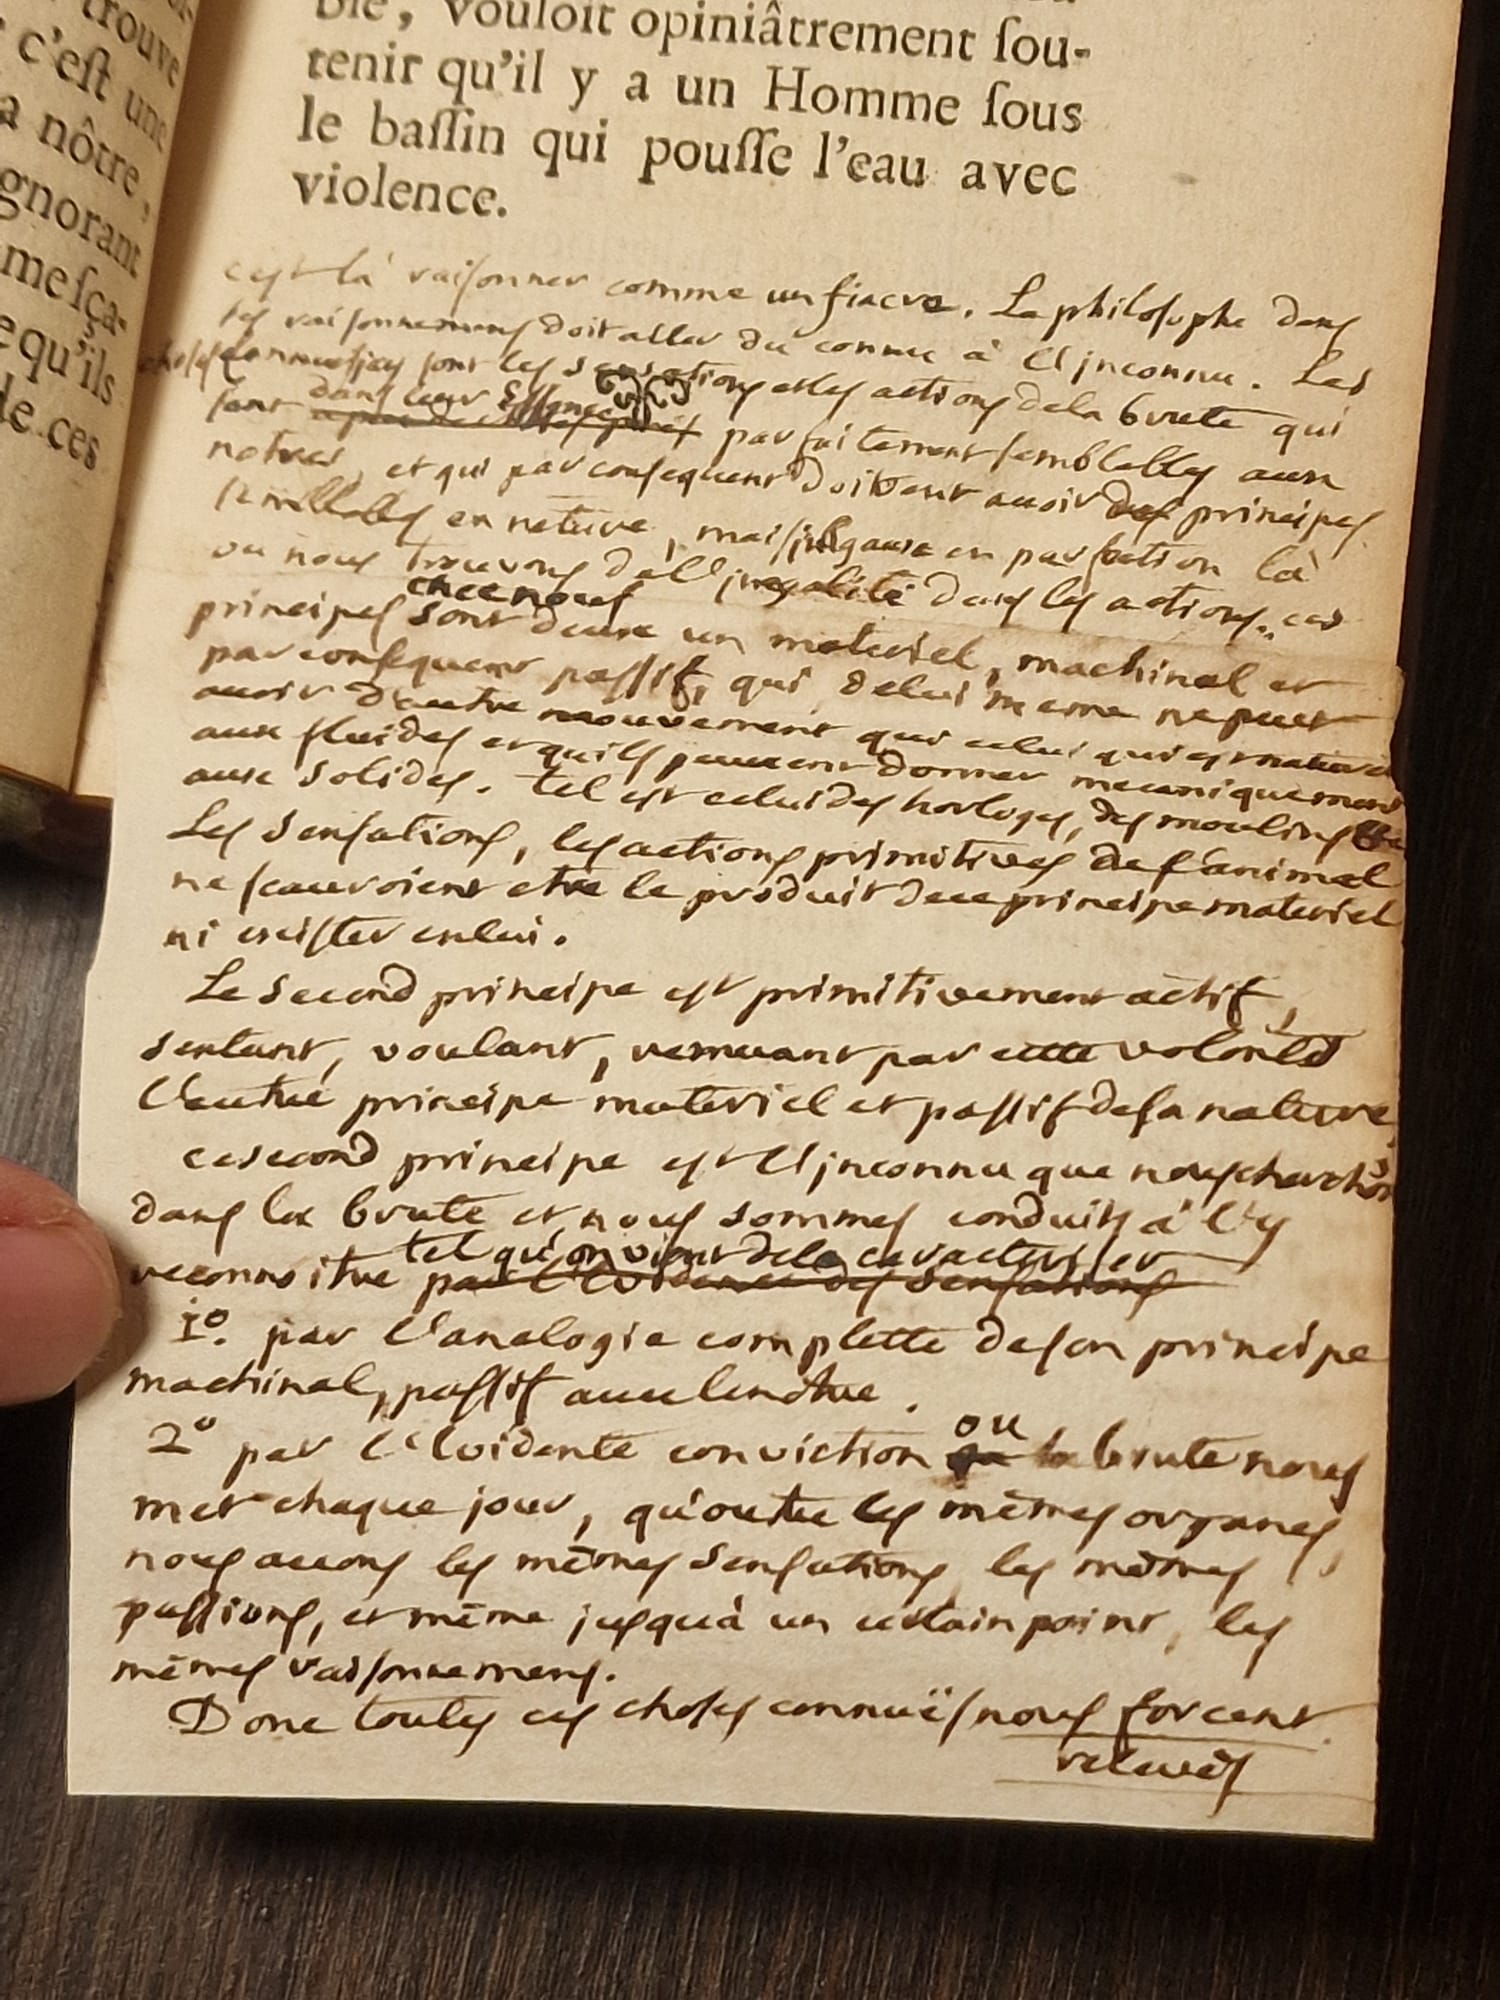 trouve
c'eſt une
a nôtre,
gnorant
meſça-
equ'ils
de ces
ble, vouloit opiniâtrement ſou-
tenir qu'il y a un Homme ſous
le baſſin qui pouſſe l'eau avec
violence.
c'est là raisonner comme un fiacre. Le philosophe dans
ses raisonnemens doit aller du connu à l'jnconnu. Les
choses connues jcy sont les sensations et les actions de la brute qui
sont dans leur Essence parfaitement semblables aux
notres, et qui par consequent doivent avoir des principes
semblables en nature, mais jnegaux en perfection là
ou nous trouvons de l'jnegalité dans les actions. ces
principes chez nous sont deux un materiel, machinal et
par consequent passif, qui de lui meme ne peut
avoir d'autre mouvement que celui qui est naturel
aux fluides et quils peuvent donner mecaniquement
aux solides. tel est celui des horloges, des moulins
Les sensations, les actions primitives de l'animal
ne scauroient etre le produit de ce principe materiel
ni exister en lui.
Le second principe est primitivement actif,
sentant, voulant, remuant par cette volonté
l'autre principe materiel et passif de sa nature,
ce second principe est l'jnconnu que nous cherchons
dans la brute et nous sommes conduits à l'y
tel qu'on vient de le caracteriser
reconnoitre par l'Evidence des sensations
1º. par l'analogie complette de son principe
machinal, passif avec le notre.
2º par l'Evidente conviction ou la brute nous
met chaque jour, qu'outre les mêmes organes,
nous avons les mêmes sensations, les mêmes
passions, et même jusqu'à un certain point, les
mêmes raisonnemens.
Donc toutes ces choses connuës nous forcent
relevés